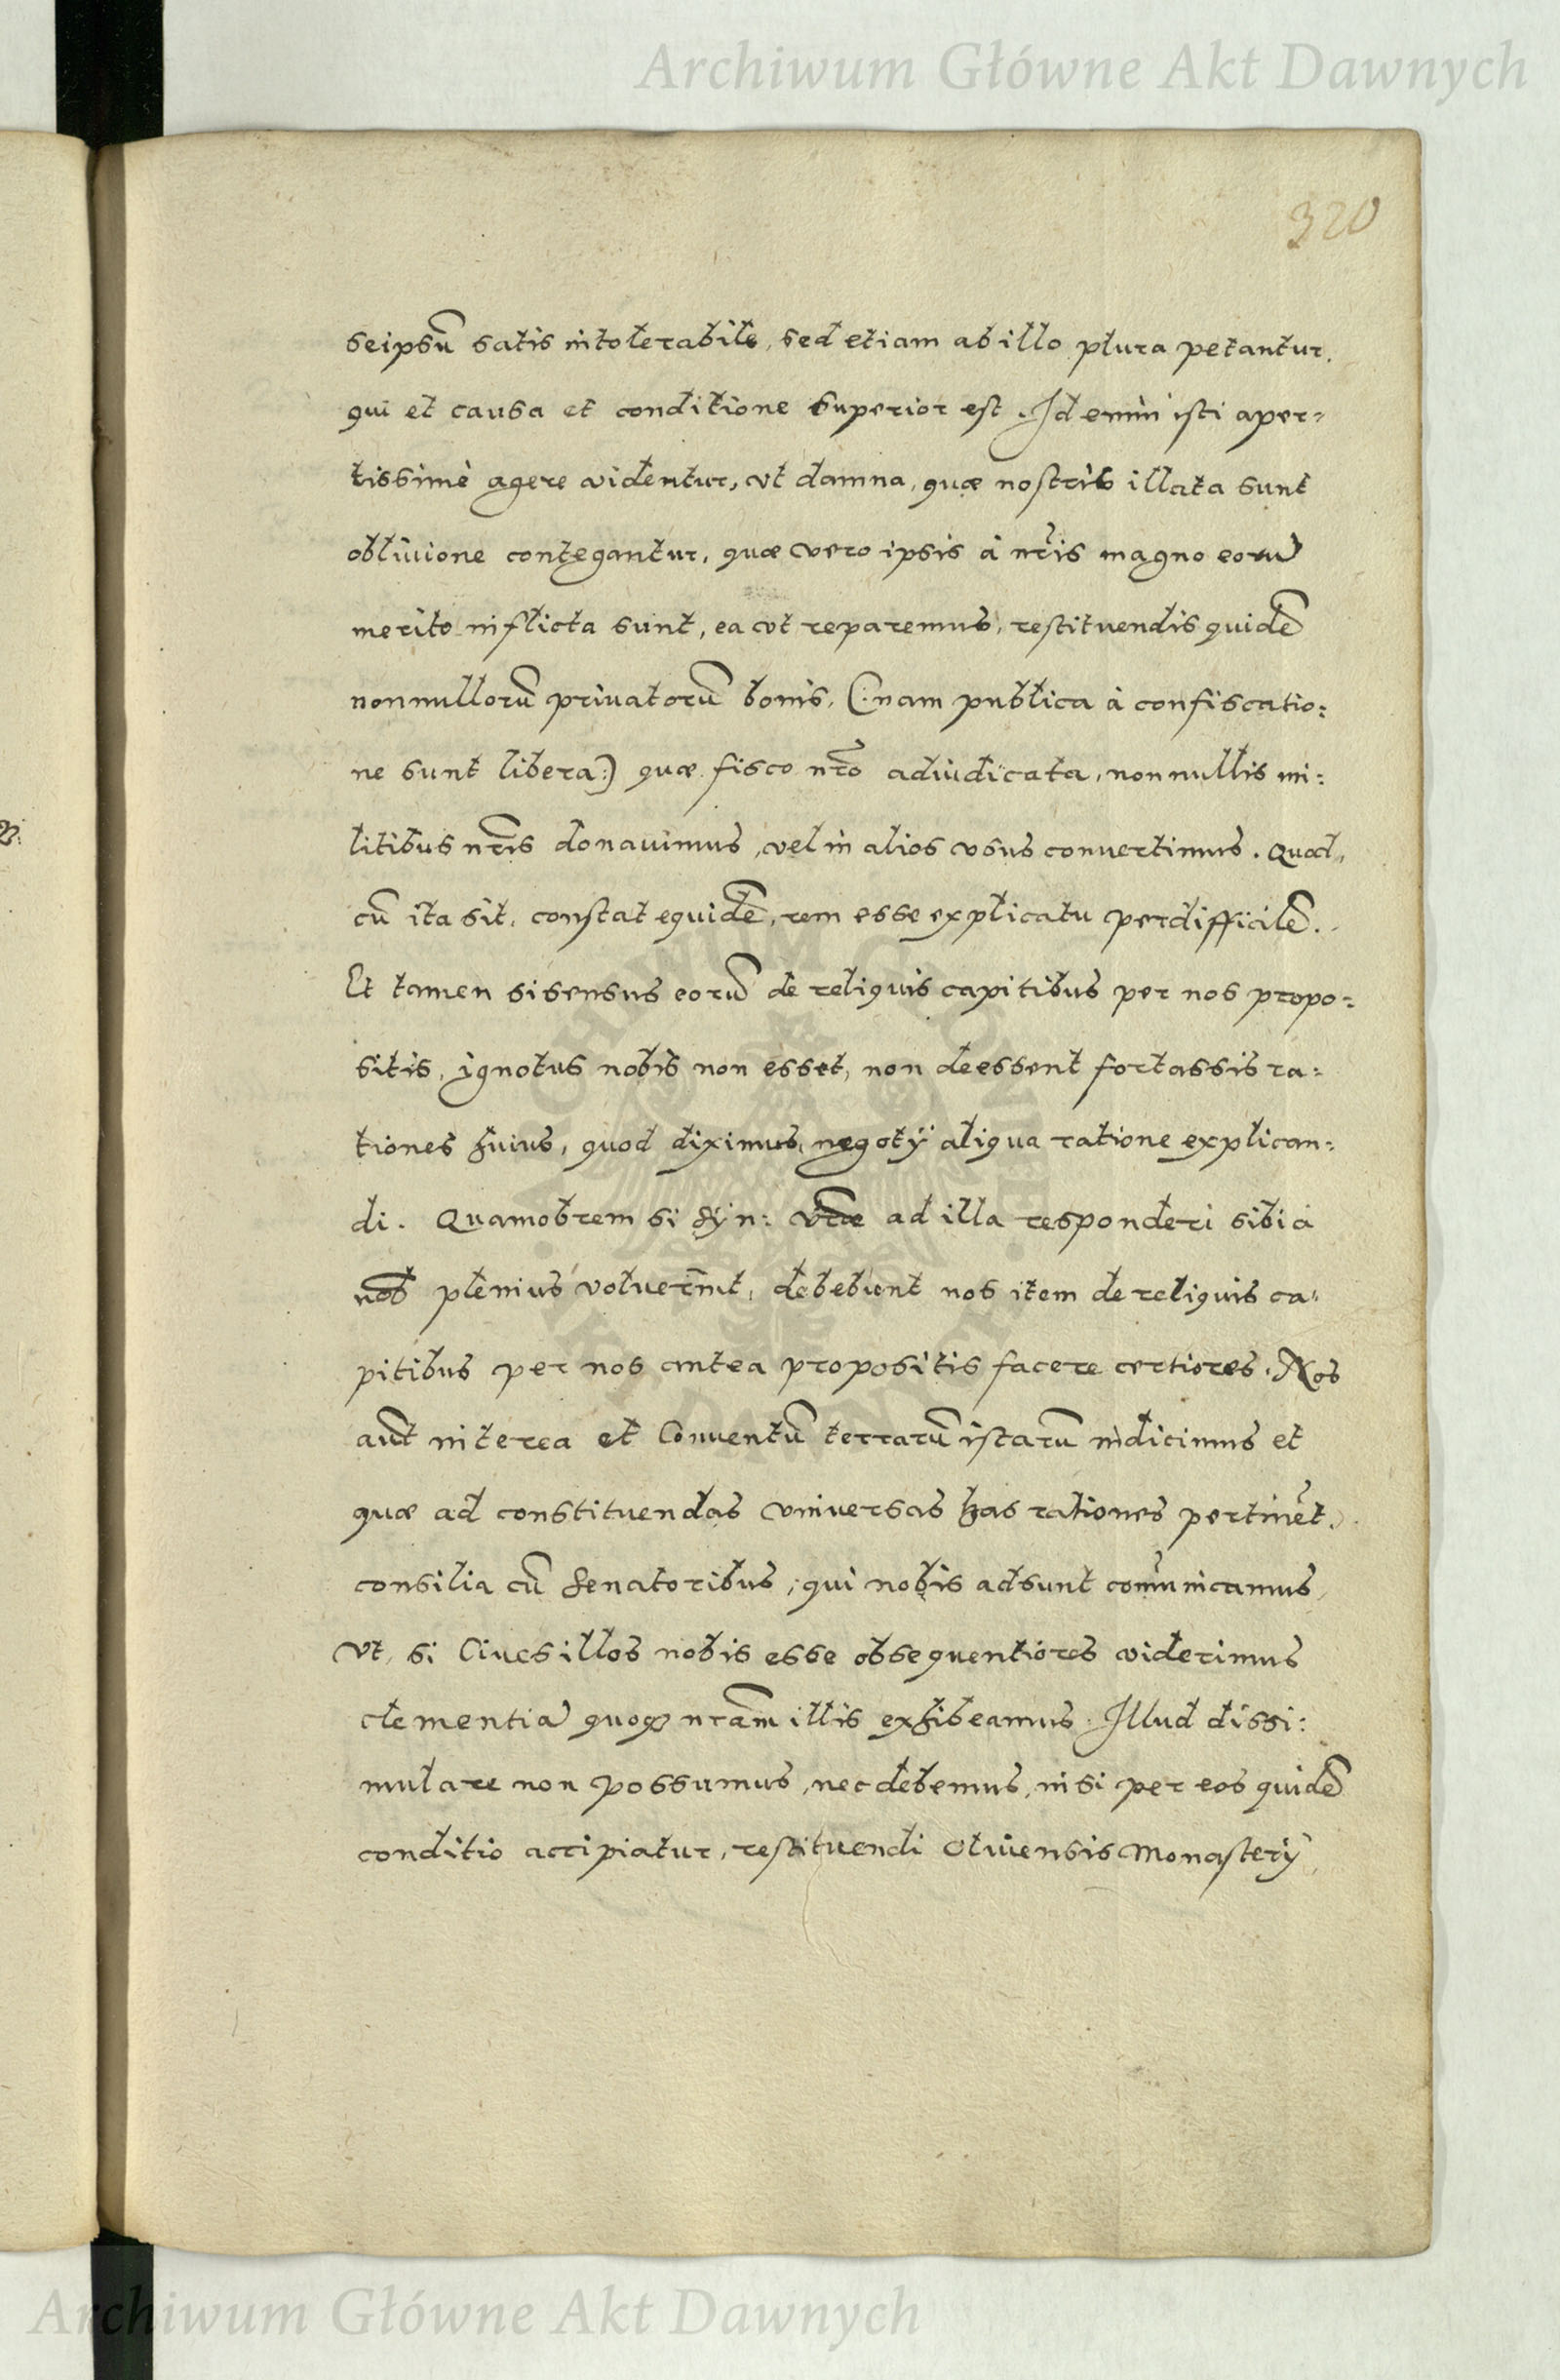 Archiwum Główne Akt Dawnych
320
seipsũ satis intolerabile, sed etiam ab illo plura petantur,
qui et causa et conditione superior est. Id enim isti aper=
tissimè agere videntur, vt damna, quæ nostris illata sunt
obliuione contegantur, quæ vero ipsis à nr̃is magno eorũ
merito inflicta sunt, ea vt reparemus, restituendis quidẽ
nonnullorũ priuatorũ bonis, (:nam publica à confiscatio=
ne sunt libera:) quæ fisco nr̃o adiudicata, nonnullis mi=
litibus nr̃is donauimus, vel in alios vsus conuertimus. Quod,
cũ ita sit, constat equidẽ, rem esse explicatu perdifficilẽ.
Et tamen si sensus eorũ de reliquis capitibus per nos propo=
sitis, ignotus nobis non esset, non deessent fortassis ra=
tiones huius, quod diximus, negotÿ aliqua ratione explican=
di. Quamobrem si Syn: vr̃æ ad illa responderi sibi à
nob̃ plenius voluerint, debebunt nos item de reliquis ca=
pitibus per nos antea propositis facere certiores. Nos
aũt interea et Conuentũ terrarũ istarũ indicimus et
quæ ad constituendas vniuersas has rationes pertinẽt,
consilia cũ Senatoribus, qui nobis adsunt com̃unicamus,
Vt, si Ciues illos nobis esse obsequentiores viderimus
clementiã quoq3 nr̃am illis exhibeamus. Illud dissi=
mulare non possumus, nec debemus, nisi per eos quidẽ
conditio accipiatur, restituendi Oliuensis Monasterÿ,
Archiwum Główne Akt Dawnych